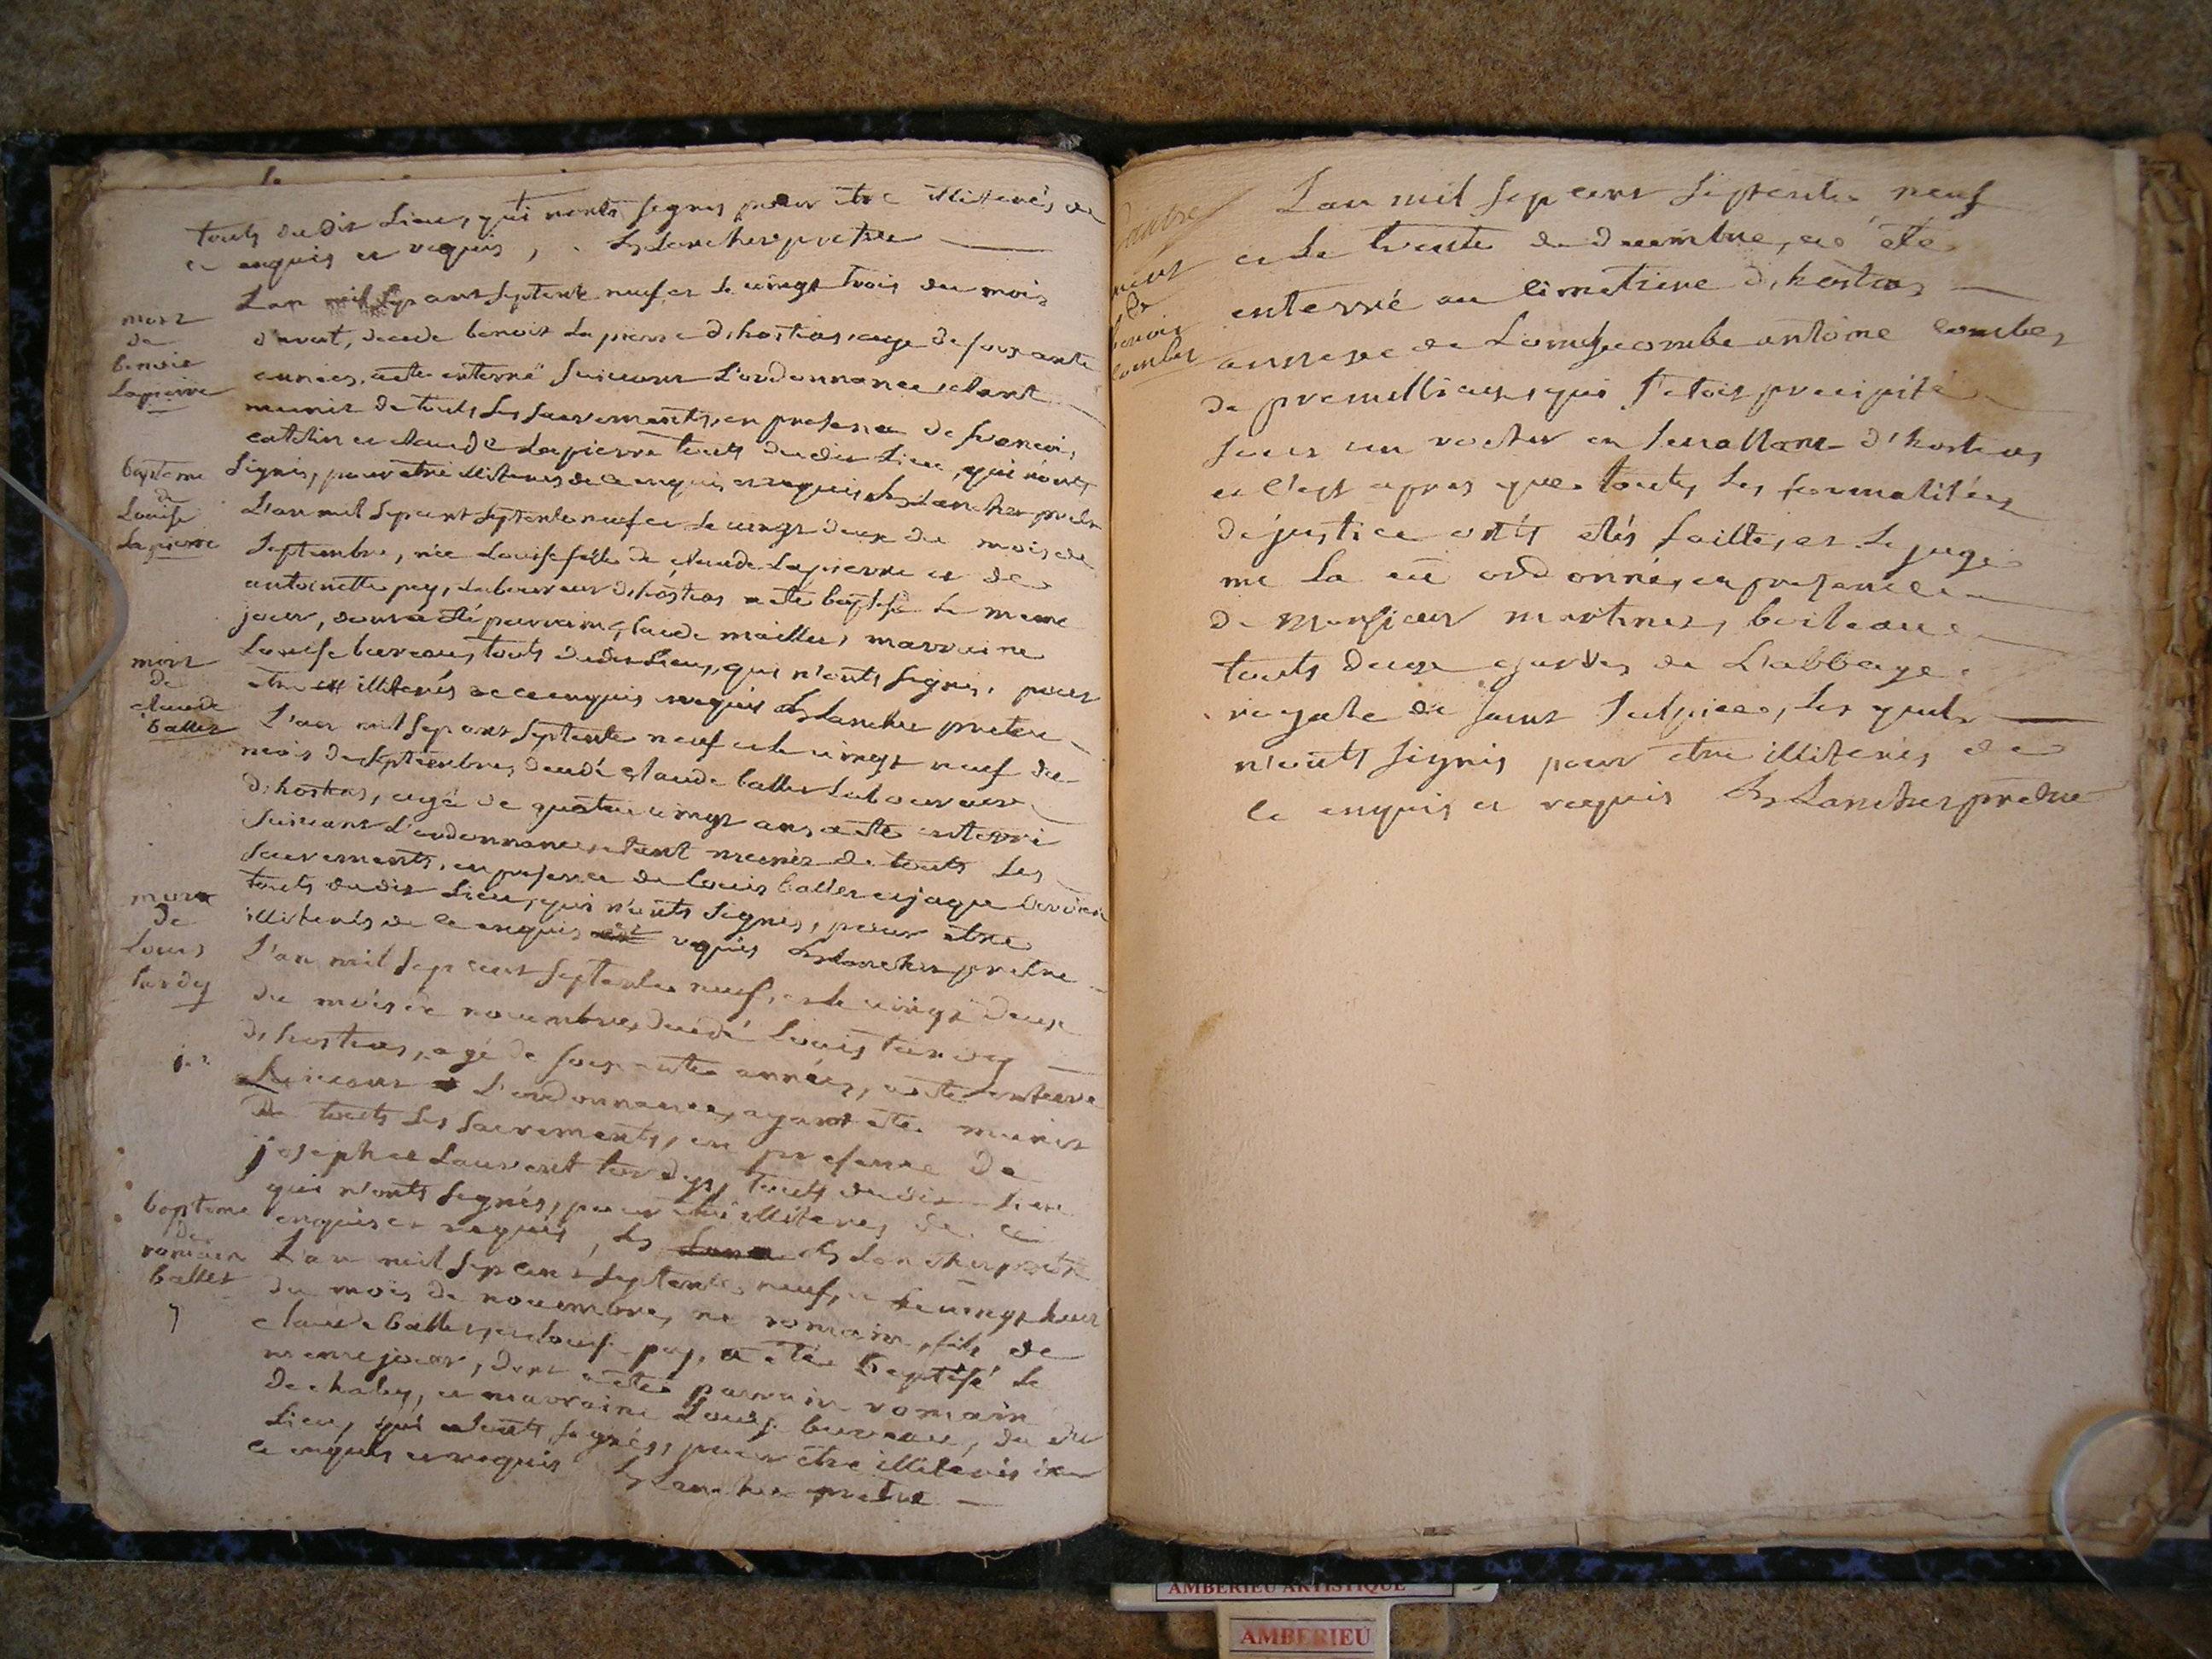 touts dudit Lieu, qui nonts signes pour être illiterés de
ce enquis et requis, Blancher pretre
mort
de
benoit
Lapierre
L'an mil sept cent septente neuf et le vingt trois du mois
d'aout, decede benoit Lapierre d'hostias, age de soixante
années, a ete enterré suivant L'ordonnance, etant
munit de touts les sacrements, en presence de francois
catelin et claude Lapierre touts dudit Lieu, qui n'onts
signés, pour etre illiteres de ce enquis et requis Blancher pretre
bapteme
de
Louise
Lapierre
L'an mil sept cent septente neuf et le vingt deux du mois de
septembre, née Louise fille de claude Lapierre et de
antoinette pey, Laboureur d'hostias a ete baptisé le meme
jour, dont a été parrain claude maillet, marraine
Louise bureau, touts dudit Lieu, qui n'onts signés, pour
etre illiterés de ce enquis requis Blancher pretre
mort
de
claude
ballet
L'an mil sept cent septente neuf et le vingt neuf du
mois de septembre, decedé claude ballet Laboureur
d'hostias, agé de quatre vingt ans a ete enterré
suivant L'ordonnance, etant munis de touts les
sacrements, en presence de louis ballet et jaque
touts dudit Lieu, qui n'onts signés, pour etre
illiterés de ce enquis requis Blancher pretre
mort
de
Louis
tardy
L'an mil sept cent septente neuf, et le vingt deux
du mois de novembre, decedé Louis tardy
d'hostias, agé de soixante années, a ete enterré
suivant L'ordonnance, ayant eté munit
de touts les sacrements, en presence de
joseph et Laurent tardy, touts dudit Lieu
qui n'onts signés, pour etre illiteres de ce
enquis et requis, Blancher pretre
bapteme
de
romain
ballet
L'an mil sept cent septente neuf, et le vingt huit
du mois de novembre, né romain, fils de
claude ballet, et Louise pey, a été baptisé le
meme jour, dont a été parrain romain
de chaley, et marraine Louise bureau, du dit
Lieu, qui n'onts signés, pour être illiterés de
ce enquis et requis Blancher pretre
mort
de
benoit
combet
L'an mil sept cent septente neuf
et le trente de decembre, a été
enterré au cimetiere d'hostias
annexe de Longecombe antoine combet
de premillieux, qui s'etoit precipité
sous un rocher en s'en allant d'hostias
et c'est apres que touts les formalitées
de justice onts etés faitte, et le juge
me la eu ordonné, en presence
de monsieur martinet, boileau
touts deux gardes de L'abbaye
royale de saint sulpice, les quels
n'onts signés pour etre illiterés de
ce enquis et requis Blancher pretre
AMBERIEU ARTISTIQUE
AMBERIEU